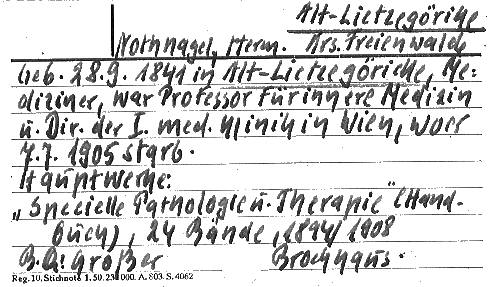 Alt-Lietzegöricke
Nothnagel, Herm. Krs. Freienwalde
Geb. 28.9. 1841 in Alt-Lietzegöricke, Me-
diziner, war Professor für innere Medizin
u. Dir. der I. med. Klinik in Wien, wo er
7.7. 1905 starb.
Hauptwerke:
„Specielle Pathologie u. Therapie" (Hand-
buch), 24 Bände, 1894/1908
B.Qu. Großer Brockhaus.
Reg. 10. Stichnote 1. 50. 23 000. A. 803. S. 4062